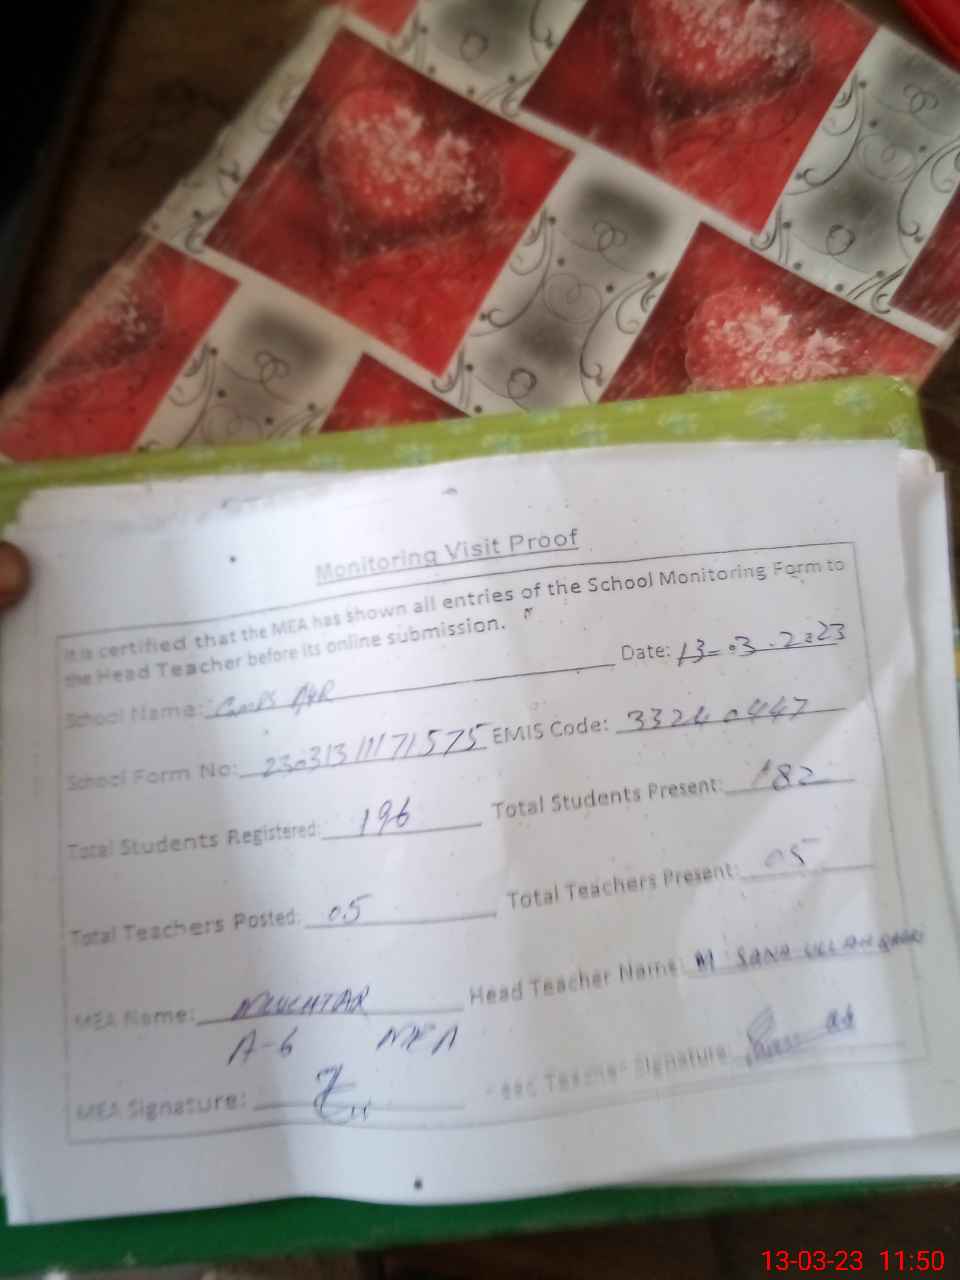 Monitoring Visit Proof
It is certified that the MEA has shown all entries of the School Monitoring Form to
the Head Teacher before its online submission.
Date: 13-03-2023
School Name:
School Form No: 23031311171575 EMIS Code: 33240447
Total Students Registered: 196 Total Students Present: 182
Total Teachers Posted: 05 Total Teachers Present: 05
MEA Name: MUCHTAR Head Teacher Name: M SANA ULLAH
A-6 MEA
MEA Signature: Head Teacher Signature:
13-03-23 11:50